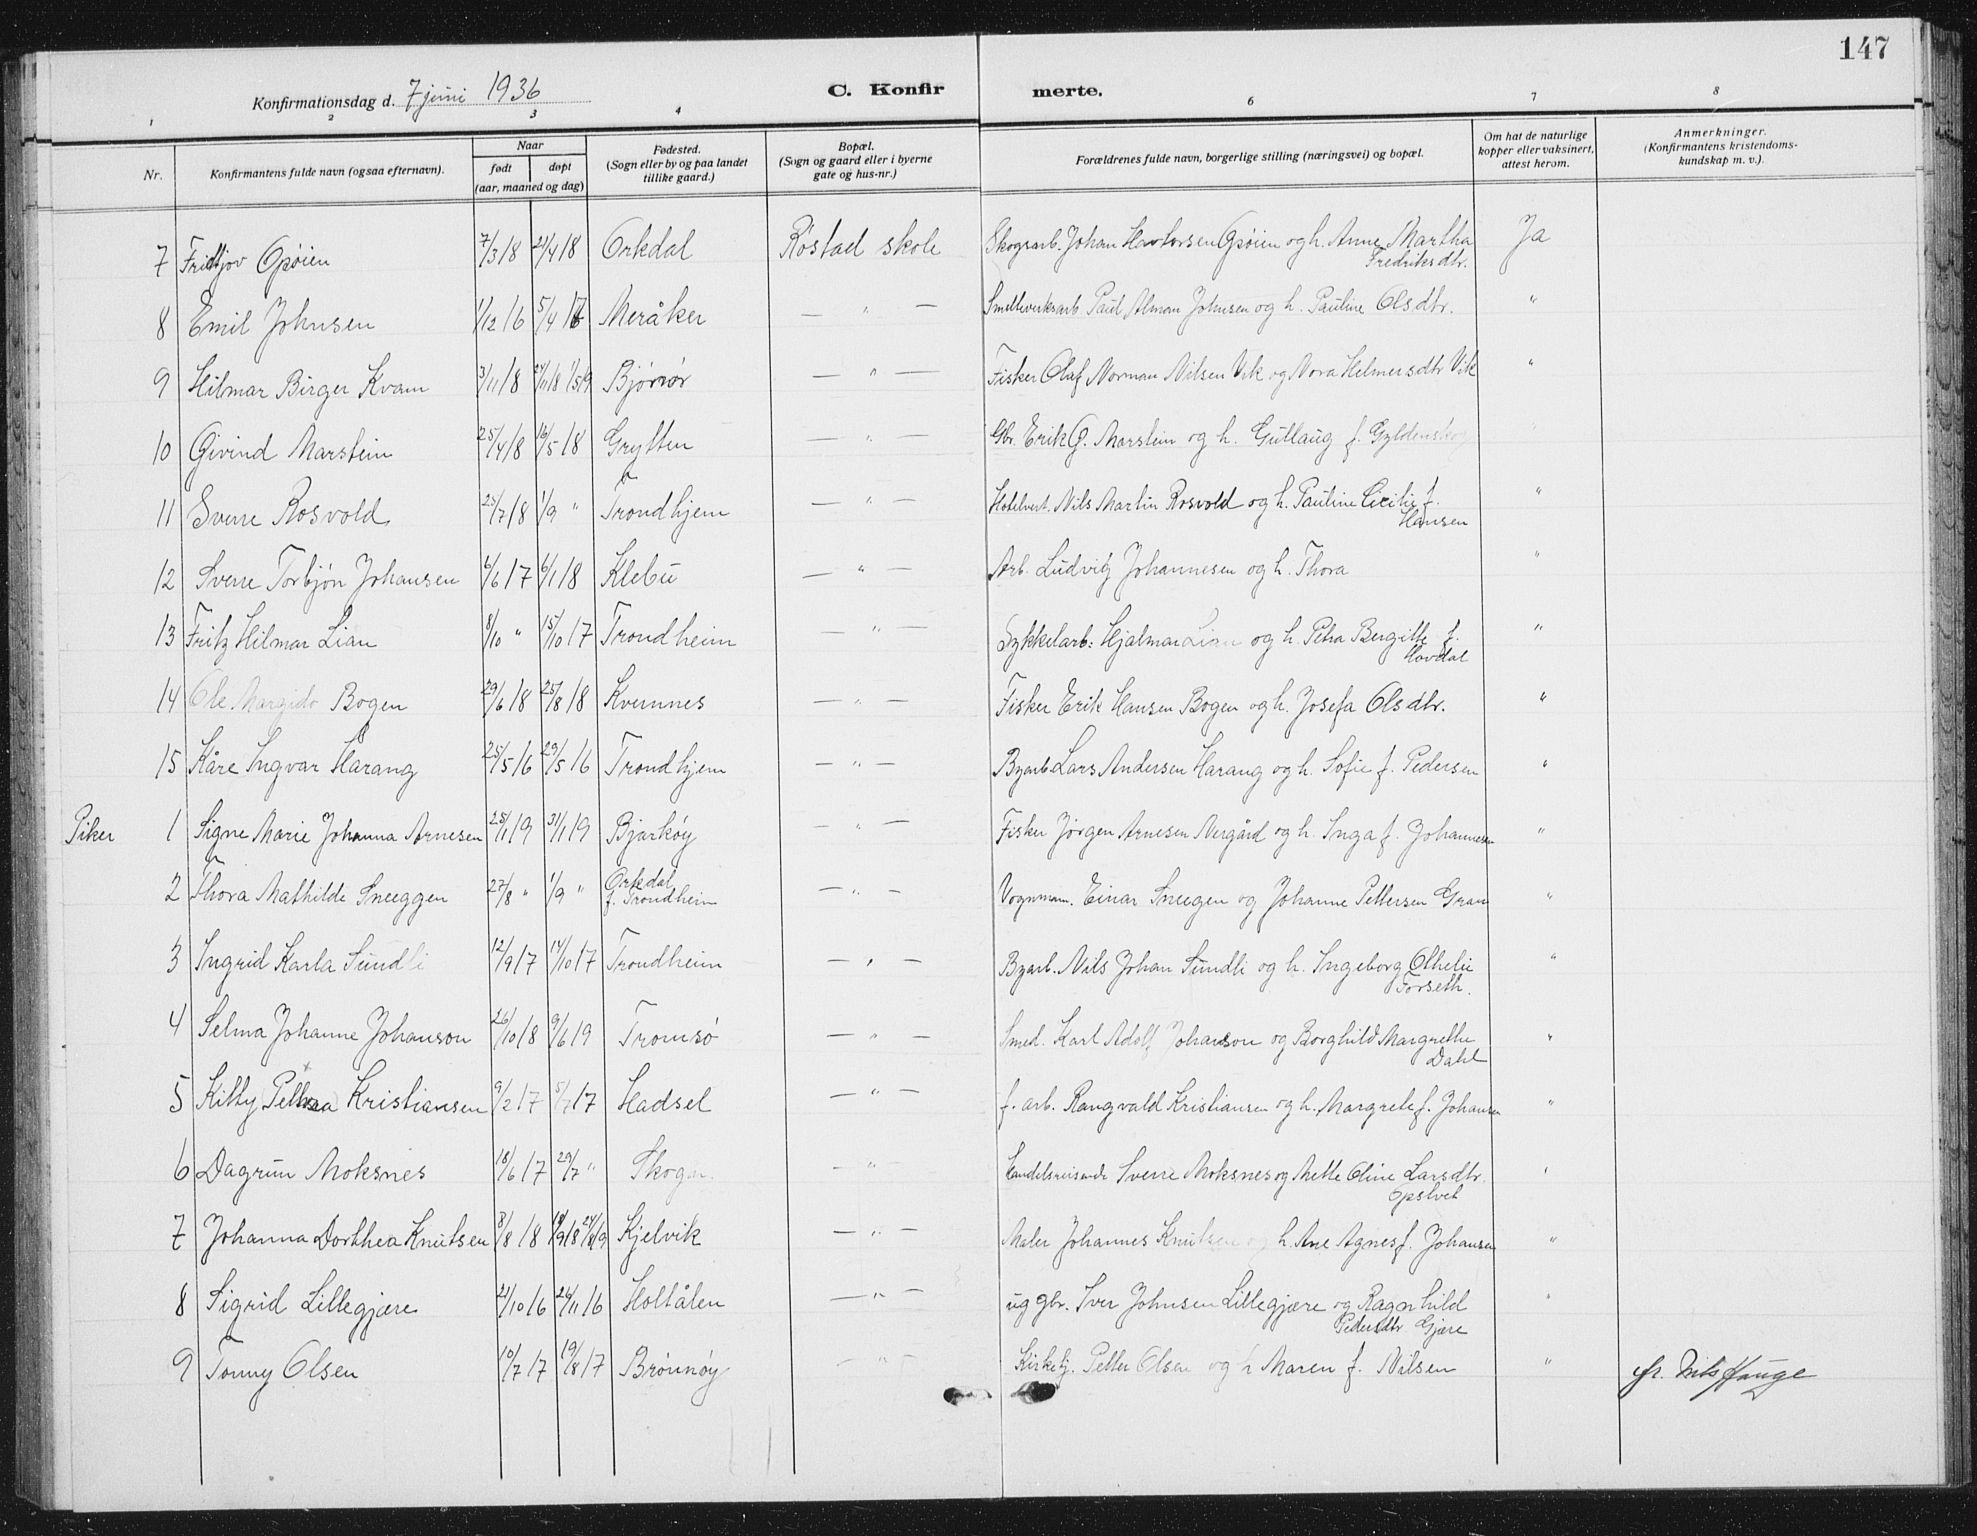 147
Konfirmationsdag d. 7 juni 1936 C. Konfir merte.
1 2 3 4 6 7 8
Nr. Konfirmantens fulde navn (ogsaa efternavn). Naar født døpt (aar, maaned og dag) Fødested. (Sogn eller by og paa landet tillike gaard.) Bopæl. (Sogn og gaard eller i byerne gate og hus-nr.) Forældrenes fulde navn, borgerlige stilling (næringsvei) og bopæl. Om hat de naturlige kopper eller vaksinert, attest herom. Anmerkninger. (Konfirmantens kristendoms-kundskap m. v.).
7 Fridtjov Opøien 7/3 18 21/4 18 Orkdal Røstad skole Skogsarb. Johan Opøien og h. Anne Martha Fredriksdtr. Ja
8 Emil Johnsen 1/12 16 5/4 17 Meråker — " — Smelteverksarb. Paul Alman Johnsen og h. Pauline Olsdtr. "
9 Hilmar Birger Kvam 3/11 18 24/11 18 1/5 19 Bjørnør — " — Fisker Olaf Norman Nilsen Vik og Nora Helmersdtr Vik "
10 Eivind Marstein 25/4 18 16/5 18 Grytten — " — Gbr. Erik O. Marstein og h. Gullaug f. Gyldenskog "
11 Sverre Rosvold 25/7 18 1/9 " Trondhjem — " — Hotelvert. Nils Martin Rosvold og h. Pauline Cecilie f. Hansen "
12 Sverre Torbjøn Johansen 6/6 17 6/1 18 Klebu — " — Arb. Ludvig Johannesen og h. Thora "
13 Fritz Hilmar Lian 8/10 " 15/10 17 Trondheim — " — Sykkelarb: Hjalmar Lian og h. Petra Bergitte f. Hovdal "
14 Ole Margido Bogen 29/6 18 25/8 18 Kvernnes — " — Fisker Erik Hansen Bogen og h. Josefa Olsdtr. "
15 Kåre Ingvar Harang 25/5 16 29/5 16 Trondhjem — " — Byarb. Lars Andersen Harang og h. Sofie f. Pedersen "
Piker 1 Signe Marie Johanna Arnesen 25/1 19 31/1 19 Bjarkøy — " — Fisker Jørgen Arnesen Nergård og h. Inga f. Johannesen "
2 Thora Mathilde Sneeggen 27/8 " 1/9 " Orkdal f. Trondheim — " — Vognmann. Einar Sneegen og Johanne Pettersen Gran "
3 Ingrid Karla Sundli 12/9 17 14/10 17 Trondheim — " — Byarb. Nils Johan Sundli og h. Ingeborg Othelie Forseth. "
4 Selma Johanne Johanson 26/10 18 9/6 19 Tromsø — " — Smed. Karl Adolf Johanson og Borghild Margrethe Dahl "
5 Kitty Petrea Kristiansen 9/2 17 5/7 17 Hadsel — " — f. arb. Rangvald Kristiansen og h. Margrete f. Johansen "
6 Dagrun Moksnes 18/6 17 29/7 " Skogn — " — Handelsreisende Sverre Moksnes og Mette Oline Larsdtr. Opslvet "
7 Johanna Dorthea Knutsen 8/8 18 24/8 19 Kjelvik — " — Maler Johannes Knutsen og h. Ane Agnes f. Johansen "
8 Sigrid Lillegjære 21/10 16 26/11 16 Holtålen — " — ug gbr. Iver Johnsen Lillegjære og Ragnhild Pedersdtr Gjære "
9 Tonny Olsen 10/7 17 19/8 17 Brønnøy — " — Kirketj. Petter Olsen og h Maren f. Nilsen " Nils Hauge